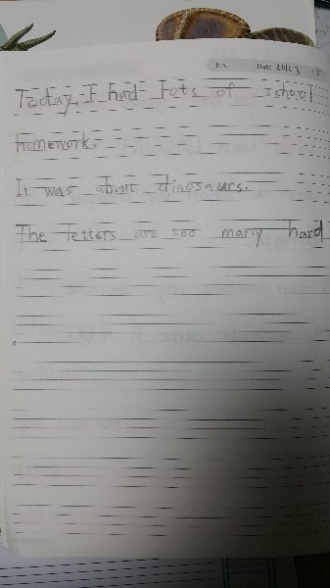 Today, I had lots of school
homework.
It was about dinosaurs.
The letters are too many hard